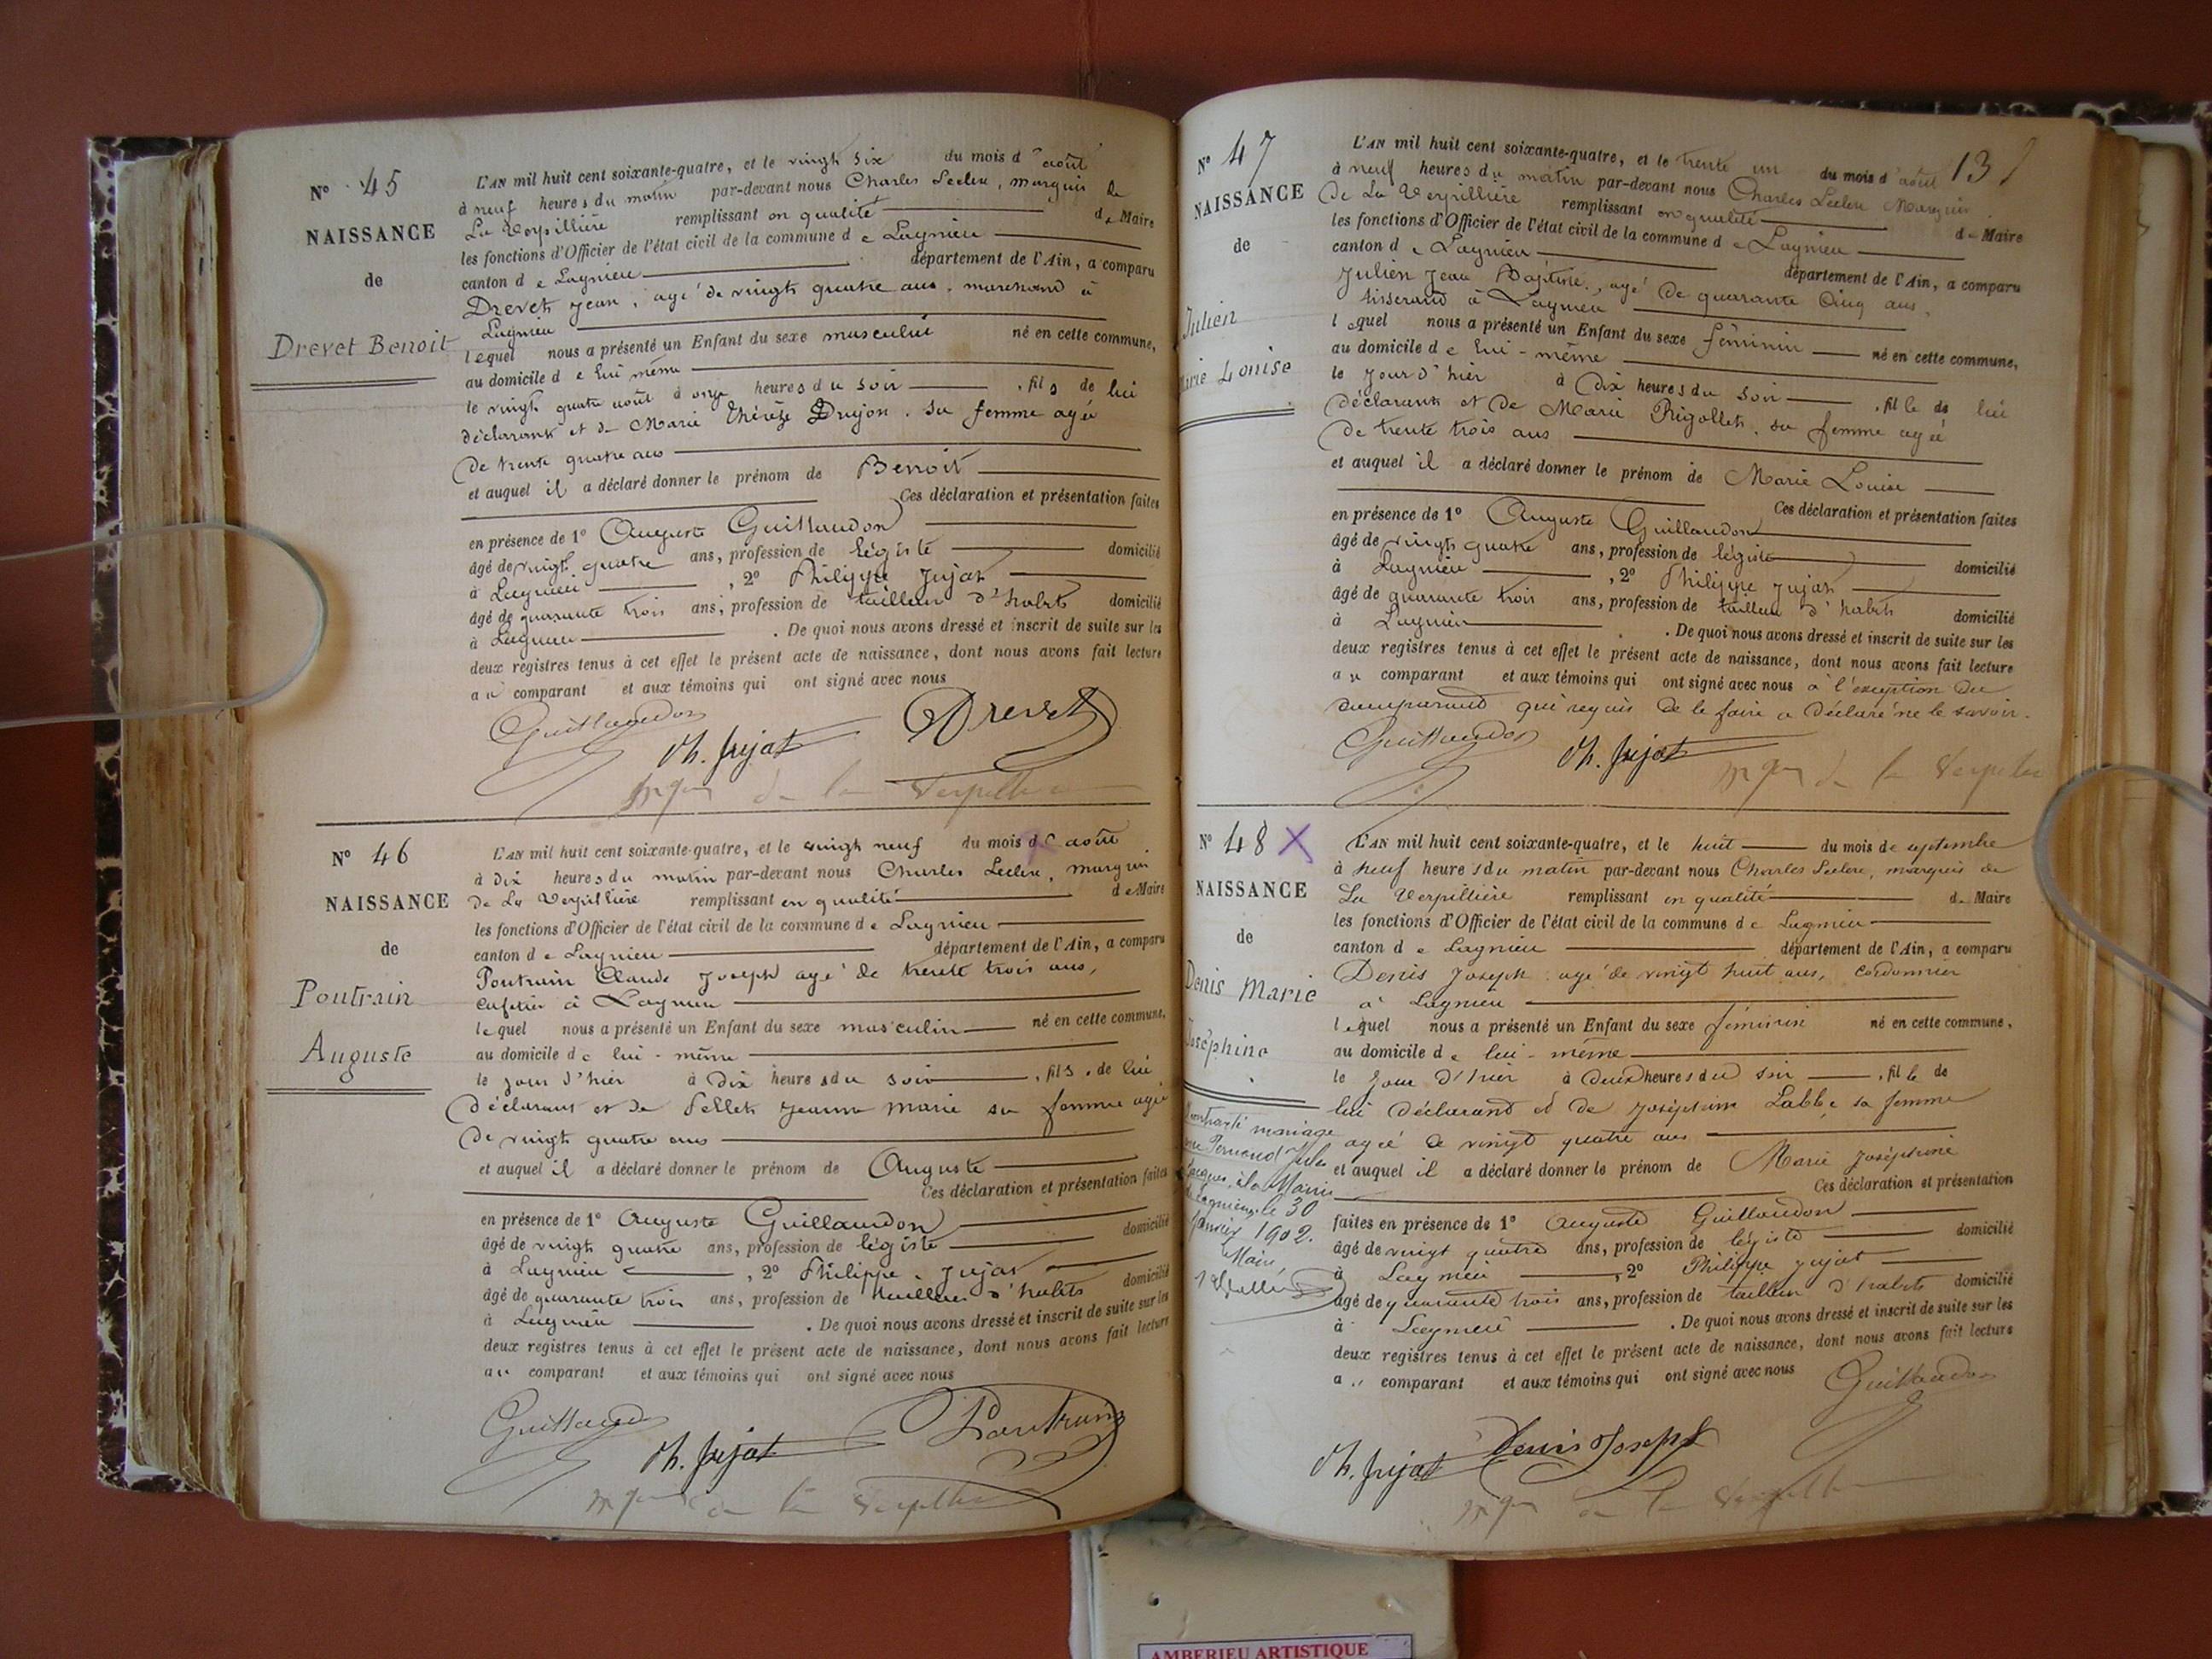 N° 45
NAISSANCE
de
Drevet Benoit
L'AN mil huit cent soixante-quatre, et le vingt six du mois d'août
à neuf heures du matin par-devant nous Charles Leclerc, marquis de
La Verpillière remplissant en qualité de Maire
les fonctions d'Officier de l'état civil de la commune de Lagnieu
canton de Lagnieu département de l'Ain, a comparu
Drevet Jean, agé de vingt quatre ans, marchand à
Lagnieu
lequel nous a présenté un Enfant du sexe masculin né en cette commune,
au domicile de lui même
le vingt quatre août à onze heures du soir, fils de lui
déclarant et de Marie Thérèze Drujon, sa femme agée
de trente quatre ans
et auquel il a déclaré donner le prénom de Benoit
Ces déclaration et présentation faites
en présence de 1° Auguste Guillaudon
âgé de vingt quatre ans, profession de légiste domicilié
à Lagnieu, 2° Philippe Jujat
âgé de quarante trois ans, profession de tailleur d'habits domicilié
à Lagnieu. De quoi nous avons dressé et inscrit de suite sur les
deux registres tenus à cet effet le présent acte de naissance, dont nous avons fait lecture
au comparant et aux témoins qui ont signé avec nous
Guillaudon
Ph. Jujat
Drevet
Mquis de la Verpillière
N° 46
NAISSANCE
de
Poutrain
Auguste
L'AN mil huit cent soixante-quatre, et le vingt neuf du mois de août
à dix heures du matin par-devant nous Charles Leclerc, marquis
de La Verpillière remplissant en qualité de Maire
les fonctions d'Officier de l'état civil de la commune de Lagnieu
canton de Lagnieu département de l'Ain, a comparu
Poutrain Claude Joseph agé de trente trois ans,
cafetier à Lagnieu
lequel nous a présenté un Enfant du sexe masculin né en cette commune,
au domicile de lui-même
le jour d'hier à dix heures du soir, fils de lui
déclarant et de Pellet Jeanne Marie sa femme agée
de vingt quatre ans
et auquel il a déclaré donner le prénom de Auguste
Ces déclaration et présentation faites
en présence de 1° Auguste Guillaudon
âgé de vingt quatre ans, profession de légiste domicilié
à Lagnieu, 2° Philippe Jujat
âgé de quarante trois ans, profession de tailleur d'habits domicilié
à Lagnieu. De quoi nous avons dressé et inscrit de suite sur les
deux registres tenus à cet effet le présent acte de naissance, dont nous avons fait lecture
au comparant et aux témoins qui ont signé avec nous
Guillaudon
Ph. Jujat
Poutrain
Mquis de la Verpillière
137
N° 47
NAISSANCE
de
Julien
Marie Louise
L'AN mil huit cent soixante-quatre, et le trente un du mois d'août
à neuf heures du matin par-devant nous Charles Leclerc Marquis
de La Verpillière remplissant en qualité de Maire
les fonctions d'Officier de l'état civil de la commune de Lagnieu
canton de Lagnieu département de l'Ain, a comparu
Julien Jean Baptiste, agé de quarante cinq ans,
tisserand à Lagnieu
lequel nous a présenté un Enfant du sexe féminin né en cette commune,
au domicile de lui-même
le jour d'hier à dix heures du soir, fille de lui
déclarant et de Marie Rigollet, sa femme agée
de trente trois ans
et auquel il a déclaré donner le prénom de Marie Louise
Ces déclaration et présentation faites
en présence de 1° Auguste Guillaudon
âgé de vingt quatre ans, profession de légiste domicilié
à Lagnieu, 2° Philippe Jujat
âgé de quarante trois ans, profession de tailleur d'habits domicilié
à Lagnieu. De quoi nous avons dressé et inscrit de suite sur les
deux registres tenus à cet effet le présent acte de naissance, dont nous avons fait lecture
au comparant et aux témoins qui ont signé avec nous à l'exception du
comparant qui requis de le faire a déclaré ne le savoir.
Guillaudon
Ph. Jujat
Mquis de la Verpillière
N° 48 X
NAISSANCE
de
Denis Marie
Joséphine
mariage
Fernand Jules
Jacques, à la Mairie
de Lagnieu, le 30
janvier 1902.
Maire,
L'AN mil huit cent soixante-quatre, et le huit du mois de septembre
à neuf heures du matin par-devant nous Charles Leclerc, marquis de
La Verpillière remplissant en qualité de Maire
les fonctions d'Officier de l'état civil de la commune de Lagnieu
canton de Lagnieu département de l'Ain, a comparu
Denis Joseph agé de vingt huit ans, cordonnier
à Lagnieu
lequel nous a présenté un Enfant du sexe féminin né en cette commune,
au domicile de lui-même
le jour d'hier à deux heures du soir, fille de
lui déclarant et de Joséphine Labbe sa femme
agée de vingt quatre ans
et auquel il a déclaré donner le prénom de Marie Joséphine
Ces déclaration et présentation
faites en présence de 1° Auguste Guillaudon
âgé de vingt quatre ans, profession de légiste domicilié
à Lagnieu, 2° Philippe Jujat
âgé de quarante trois ans, profession de tailleur d'habits domicilié
à Lagnieu. De quoi nous avons dressé et inscrit de suite sur les
deux registres tenus à cet effet le présent acte de naissance, dont nous avons fait lecture
au comparant et aux témoins qui ont signé avec nous
Guillaudon
Ph. Jujat
Denis Joseph
Mquis de la Verpillière
AMBERIEU ARTISTIQUE